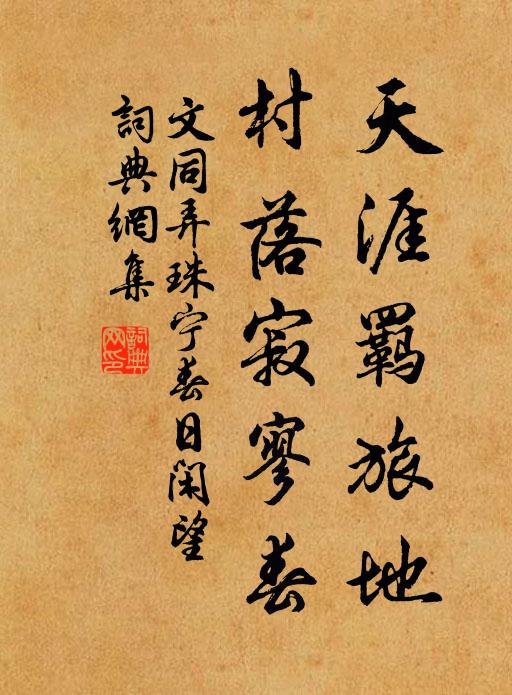 天涯羈旅地
村落寂寥春
文同弄珠宁春日閑望
詞典網集
詞典
网印